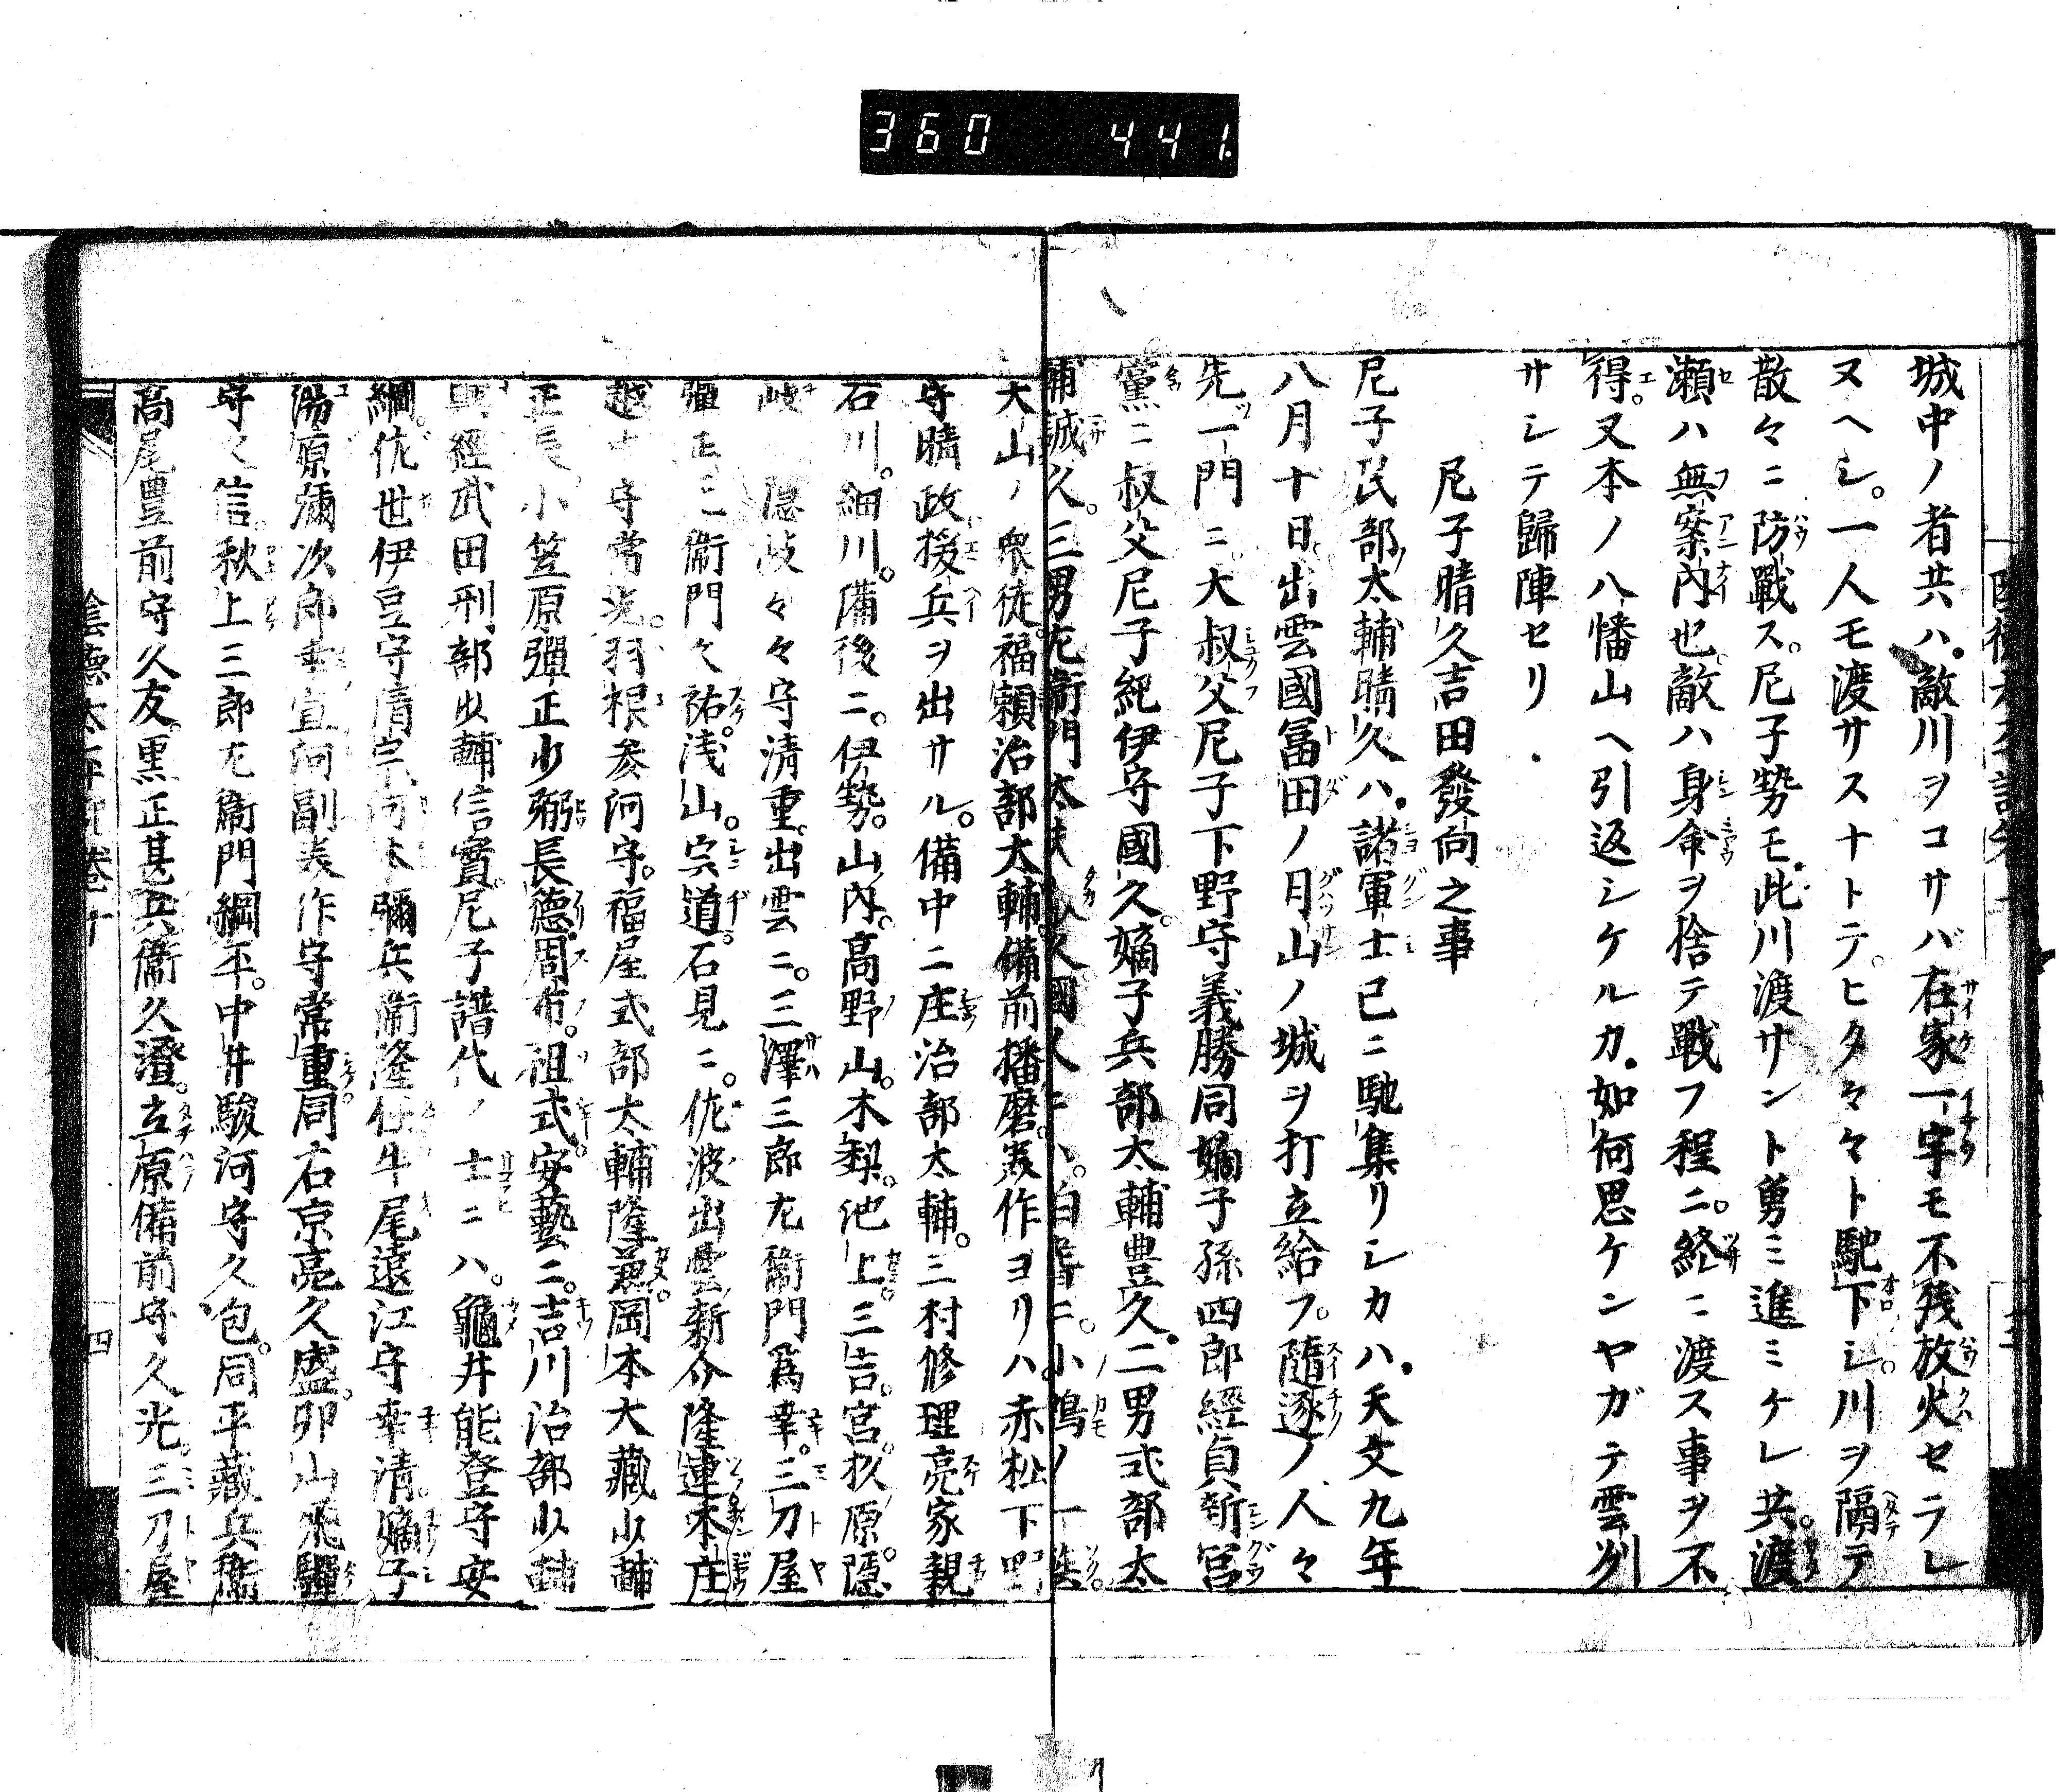 360 441
城中ノ者共ハ。敵川ヲコサバ在家一宇モ不残放火セラレ
ヌヘシ。一人モ渡サスナトテ。ヒタ々々ト馳下シ。川ヲ隔テ
散々ニ防戰ス。尼子勢モ。此川渡サント勇ミ進ミケレ共。渡
瀬ハ無案內也。敵ハ身命ヲ捨テ戰フ程ニ。終ニ渡ス事ヲ不
得。又本ノ八幡山ヘ引返シケルカ。如何思ケンヤガテ雲州
サシテ歸陣セリ
尼子晴久吉田發向之事
尼子民部太輔晴久ハ。諸軍士已ニ馳集リシカハ。天文九年
八月十日。出雲國冨田ノ月山ノ城ヲ打立給フ。隨逐ノ人々
先一門ニ。大叔父尼子下野守義勝同嫡子孫四郎經貞新宮
黨ニ叔父尼子紀伊守國久。嫡子兵部太輔豊久。二男式部太
輔誠久。三男左衞門太夫 久國人ニハ。伯耆ニ。小鴨ノ一族。
大山ノ衆徒。福賴治部大輔。備前播磨。美作ヨリハ。赤松下野
守晴政援兵ヲ出サル。備中ニ庄治部太輔。三村修理亮家親
石川。細川。備後ニ。伊勢。山內。高野山。木梨。池上。三吉。宮。杦原。隱
岐 隱岐々守清重。出雲ニ。三澤三郎左衞門爲幸。三刀屋
彈正 衞門久祐。浅山。宍道。石見ニ。佐波出雲新介隆連本庄
越中守常光。羽根参河守。福屋式部太輔隆兼。岡本大藏少輔
正長 小笠原彈正少弼長德。周布。祖式。安藝ニ。吉川治部少輔
興經武田刑部少輔信實。尼子譜代ノ士ニハ。龜井能登守安
綱。佐世伊豆守清宗 河本彌兵衞隆任牛尾遠江守幸清。嫡子
湯原彌次郎 宣河副美作守常重同右京亮久盛。卯山飛驒
守久信。秋上三郎左衞門綱平。中井駿河守久包。同平藏兵衞
高尾豊前守久友。黒正甚兵衞久澄。立原備前守久光。三刀屋
陰德太平記卷十
四